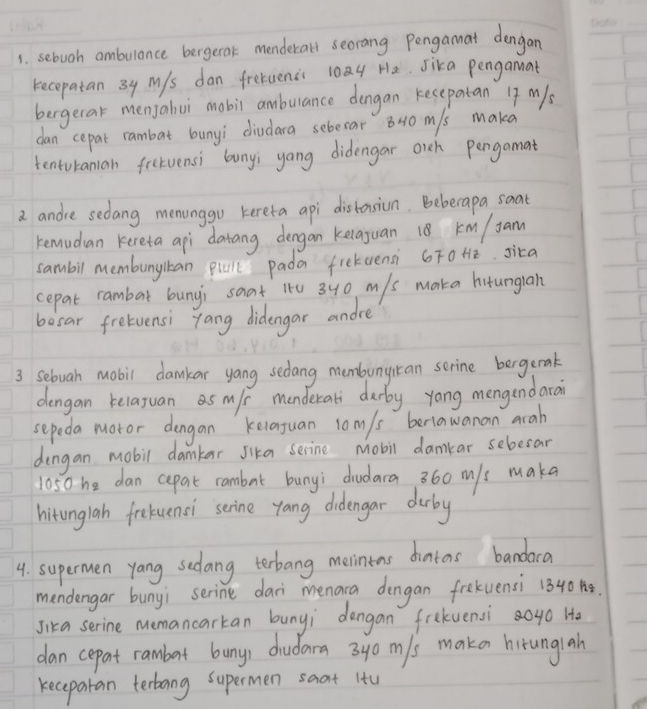 1. sebuah ambulance bergerak mendekati seorang Pengamat dengan
kecepatan 34 m/s dan frekuensi 1024 Hz. Jika Pengamat
bergerak menjahui mobil ambulance dengan kecepatan 17 m/s
dan cepat rambat bunyi diudara sebesar 340 m/s maka
tentukanlah frekuensi bunyi yang didengar oleh pengamat
2 andre sedang menunggu kereta api distasiun. Beberapa saat
kemudian kereta api datang dengan kelajuan 18 km/jam
sambil membunyikan pluit pada frekuensi 670 Hz. Jika
cepat rambat bunyi saat itu 340 m/s maka hitunglah
besar frekuensi yang didengar andre
3 sebuah mobil damkar yang sedang membunyikan serine bergerak
dengan kelajuan 25 m/s mendekati derby yang mengendarai
sepeda motor dengan kelajuan 10 m/s berlawanan arah
dengan mobil damkar jika serine mobil damkar sebesar
1050 hz dan cepat rambat bunyi diudara 360 m/s maka
hitunglah frekuensi serine yang didengar derby
4. supermen yang sedang terbang melintas diatas bandara
mendengar bunyi serine dari menara dengan frekuensi 1340 hz.
Jika serine memancarkan bunyi dengan frekuensi 2040 Hz
dan cepat rambat bunyi diudara 340 m/s maka hitunglah
kecepatan terbang supermen saat itu